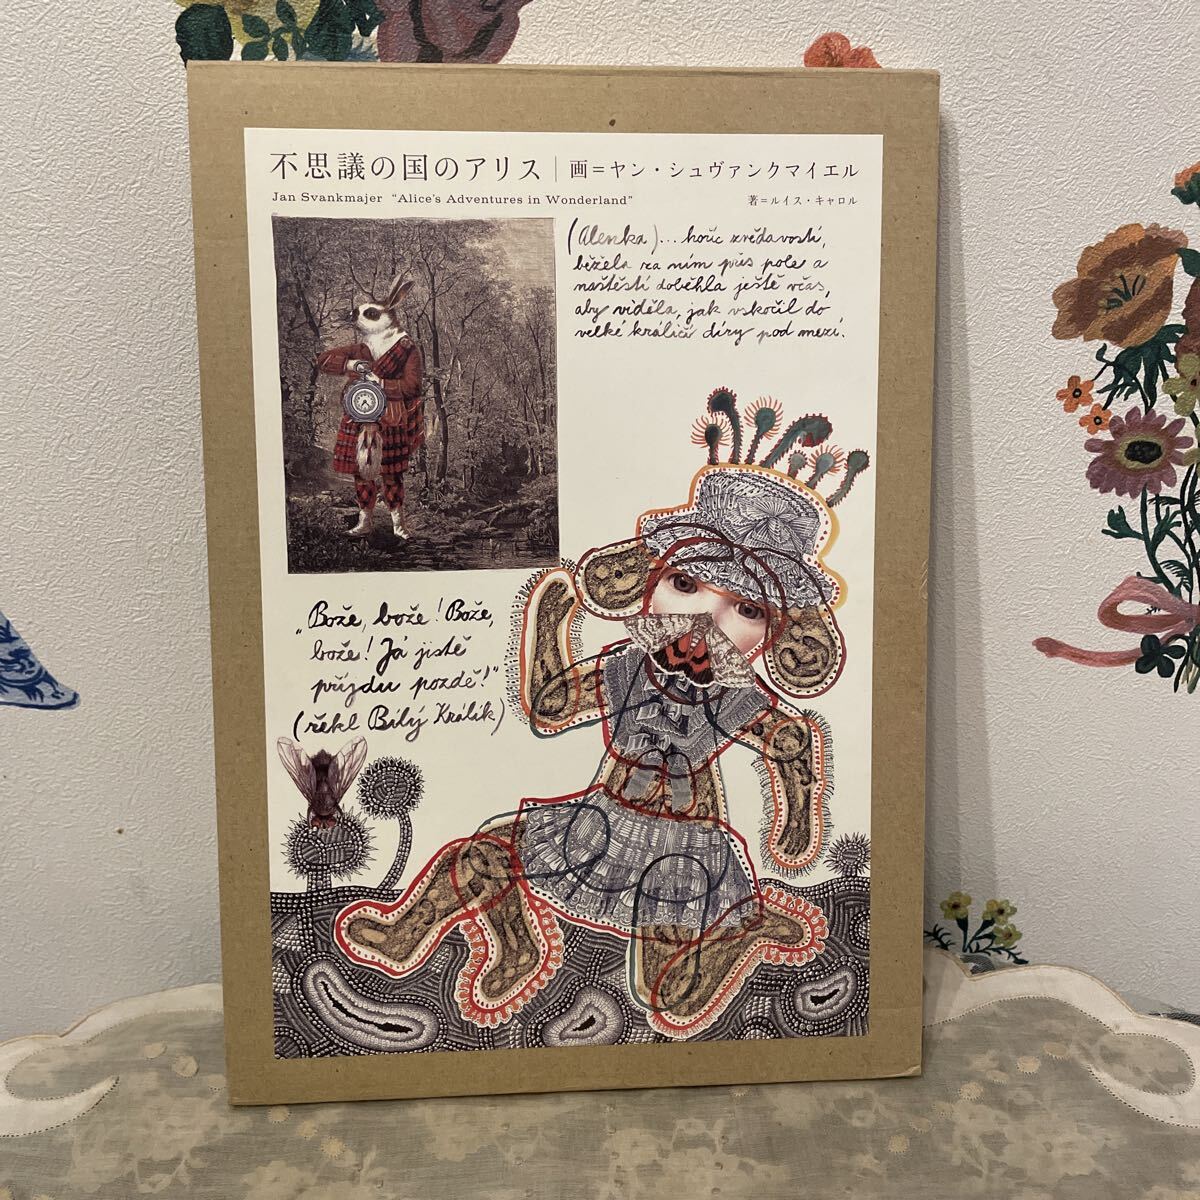 不思議の国のアリス｜画＝ヤン・シュヴァンクマイエル
Jan Svankmajer “Alice's Adventures in Wonderland”
著＝ルイス・キャロル
(Alenka)... hoříc zvědavostí,
běžela za ním přes pole a
naštěstí doběhla ještě včas,
aby viděla, jak vskočil do
velké králičí díry pod mezí.
„Bože, bože! Bože,
bože! Já jistě
přijdu pozdě!“
(řekl Bílý Králík)